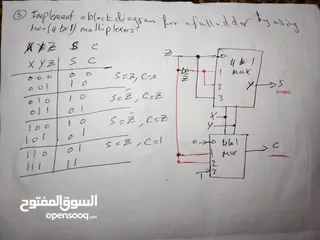 ③ Implement a block diagram for a full adder by using
two (4 to 1) multiplexers?
X Y Z S C
X Y Z S C
0 0 0 0 0
0 0 1 1 0
S=Z, C=0
0 1 0 1 0
0 1 1 0 1
S=Z̄, C=Z
1 0 0 1 0
1 0 1 0 1
S=Z̄, C=Z
1 1 0 0 1
1 1 1 1 1
S=Z, C=1
Z
Z̄
0
1
2
3
4 to 1
MUX
Y
S
X
Y
0
0
1
2
3
1
4 to 1
MUX
C
السوق المفتوح
opensooq.com